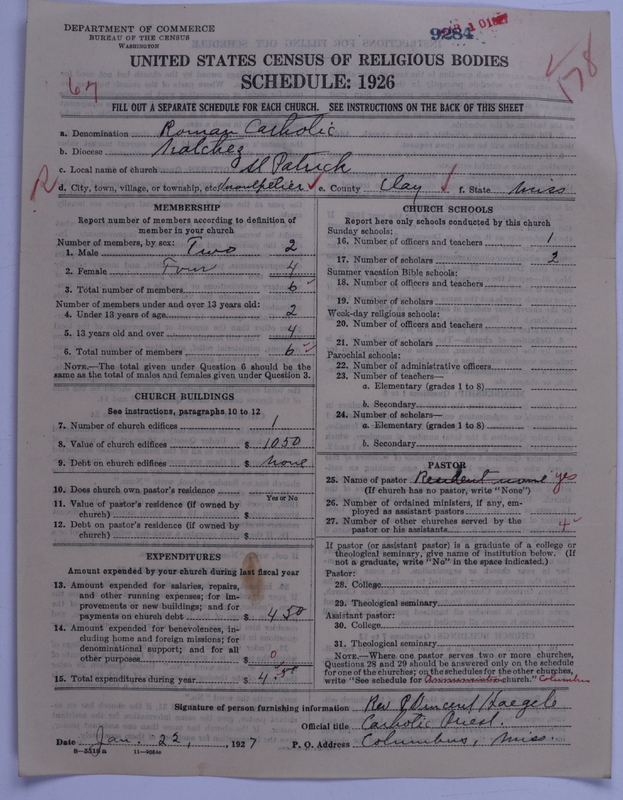 DEPARTMENT OF COMMERCE
BUREAU OF THE CENSUS
WASHINGTON
9284
UNITED STATES CENSUS OF RELIGIOUS BODIES
SCHEDULE: 1926
67
178
FILL OUT A SEPARATE SCHEDULE FOR EACH CHURCH. SEE INSTRUCTIONS ON THE BACK OF THIS SHEET
a. Denomination Roman Catholic
b. Diocese Natchez
c. Local name of church St Patrick
d. City, town, village, or township, etc. Montpelier e. County Clay f. State Miss
MEMBERSHIP
Report number of members according to definition of member in your church
Number of members, by sex:
1. Male Two 2
2. Female Four 4
3. Total number of members 6
Number of members under and over 13 years old:
4. Under 13 years of age 2
5. 13 years old and over 4
6. Total number of members 6
NOTE.—The total given under Question 6 should be
same as the total of males and females given under Question 3.
CHURCH BUILDINGS
See instructions, paragraphs 10 to 12
7. Number of church edifices 1
8. Value of church edifices $ 1050
9. Debt on church edifices $ none
10. Does church own pastor's residence
Yes or No
11. Value of pastor's residence (if owned by
church) $
12. Debt on pastor's residence (if owned by
church) $
EXPENDITURES
Amount expended by your church during last fiscal year
13. Amount expended for salaries, repairs,
and other running expenses; for im-
provements or new buildings; and for
payments on church debt $ 4 50
14. Amount expended for benevolences, in-
cluding home and foreign missions; for
denominational support; and for all
other purposes $ 0
15. Total expenditures during year $ 4.50
CHURCH SCHOOLS
Report here only schools conducted by this church
Sunday schools:
16. Number of officers and teachers 1
17. Number of scholars 2
Summer vacation Bible schools:
18. Number of officers and teachers
19. Number of scholars
Week-day religious schools:
20. Number of officers and teachers
21. Number of scholars
Parochial schools:
22. Number of administrative officers
23. Number of teachers—
a. Elementary (grades 1 to 8)
b. Secondary
24. Number of scholars—
a. Elementary (grades 1 to 8)
b. Secondary
PASTOR
25. Name of pastor Resident none yes
(If church has no pastor, write "None")
26. Number of ordained ministers, if any, em-
ployed as assistant pastors
27. Number of other churches served by the
pastor or his assistants 4
If pastor (or assistant pastor) is a graduate of a college or
theological seminary, give name of institution below. (If
not a graduate, write "No" in the space indicated.)
Pastor:
28. College
29. Theological seminary
Assistant pastor:
30. College
31. Theological seminary
NOTE.—Where one pastor serves two or more churches,
Questions 28 and 29 should be answered only on the schedule
for one of the churches; on the schedules for the other churches,
write "See schedule for Annunciation church." Columbus
Signature of person furnishing information Rev J Vincent Haegele
Official title Catholic Priest.
Date Jan. 22, 1927 P. O. Address Columbus, Miss.
8-5519a 11-9284